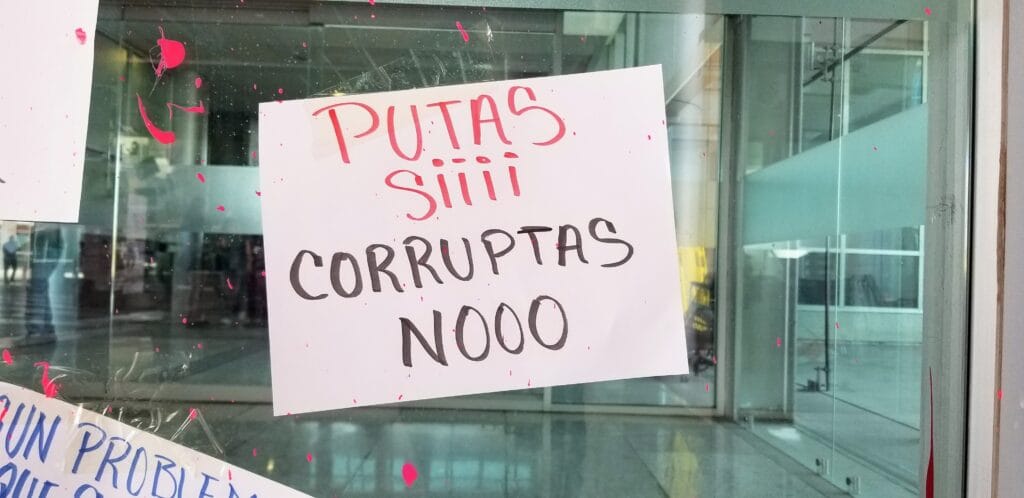 PUTAS
Siiii
CORRUPTAS
NOOO
UN PROBLEM
QUE